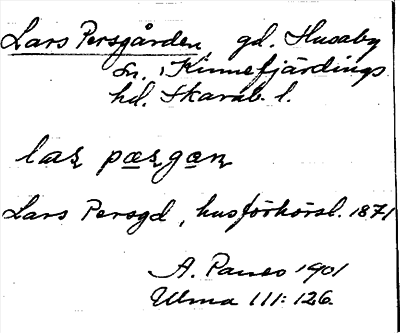 Lars Persgården, gd. Husaby
sn., Kinnefjärdings
hd. Skarab. l.
las pæsgaen
Lars Persgd, husförhörsl. 1871
A. Palseo 1901
Ulma 111:126.